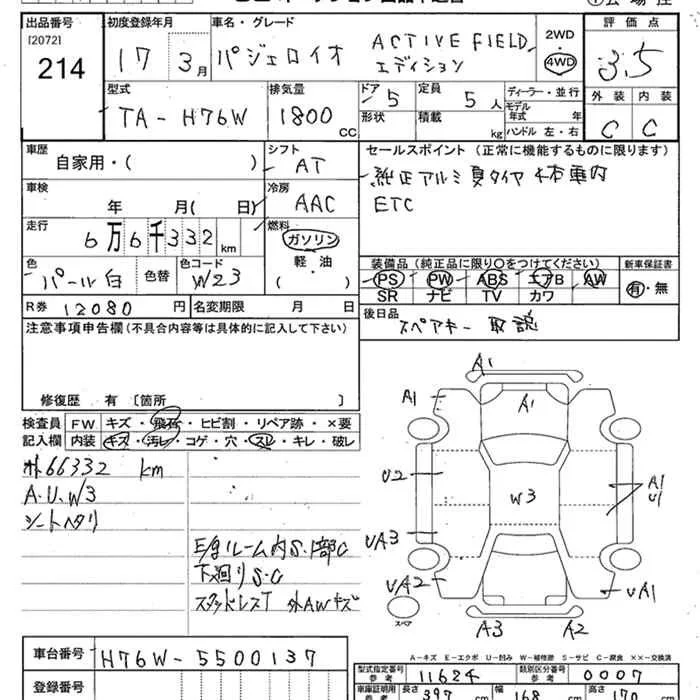 出品番号 初度登録年月 車名・グレード 評価点
[2072] 214
17 3月 パジェロイオ ACTIVE FIELD エディション
2WD 4WD
3.5
型式 排気量 ドア 定員 ディーラー・並行 外装 内装
TA-H76W 1800 CC 5 5人 モデル年式 年式
形状 積載 kg ハンドル 左・右 C C
車歴 シフト セールスポイント(正常に機能するものに限ります)
自家用・( ) AT 純正アルミ 夏タイヤ 4本車内
車検 冷房 ETC
年 月(日) AAC
走行 燃料
6万6千332km ガソリン
軽・油
( )
色 色替 色コード 装備品(純正品に限り○をつけてください) 新車保証書
パール白 W23 PS PW ABS エアB AW 有・無
SR ナビ TV カワ
R券 12080円 名変期限 月 日 後日品
スペアキー 取説
注意事項申告欄(不具合内容等は具体的に記入して下さい)
修復歴 有 〔箇所 〕
検査員 記入欄
FW キズ・飛石・ヒビ割・リペア跡・×要
内装 キズ・汚レ・コゲ・穴・スレ・キレ・破レ
66332 km
A.U.W3
シートヘタリ
E/gルーム内S.1部C
下廻りS.C
スタッドレスT 外AWキズ
A1
A1 A1
U2 A1 U1
W3
UA3
UA2 UA1
スペア
A3 A2
A-キズ E-エクボ U-凹み W-補修跡 S-サビ C-腐食 ××-交換済
車台番号 H76W-5500137
登録番号
型式指定番号 参考 11624 類別区分番号 参考 0007
車庫証明用 参考 長さ 397 cm 幅 168 cm 高さ 170 cm